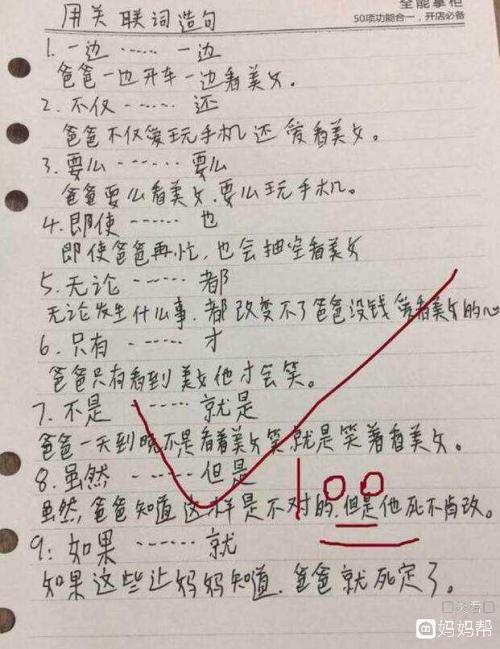 全能掌柜
50项功能合一,开店必备
用关联词造句
1. 一边 …… 一边
爸爸一边开车一边看美女。
2. 不仅 …… 还
爸爸不仅爱玩手机还爱看美女。
3. 要么 …… 要么
爸爸要么看美女,要么玩手机。
4. 即使 …… 也
即使爸爸再忙,也会抽空看美女
5. 无论 …… 都
无论发生什么事,都改变不了爸爸没钱爱看美女的心
6. 只有 …… 才
爸爸只有看到美女他才会笑。
7. 不是 …… 就是
爸爸一天到晚不是看着美女笑就是笑着看美女。
8. 虽然 …… 但是
虽然,爸爸知道这样是不对的,但是他死不肯改。
100
9. 如果 …… 就
如果这些让妈妈知道,爸爸就死定了。
妈妈帮